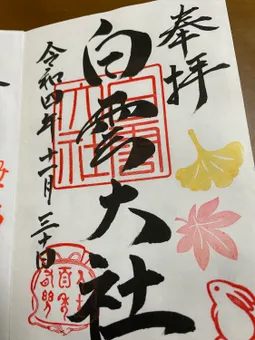 奉拝
白雲大社
令和四年十二月三十日